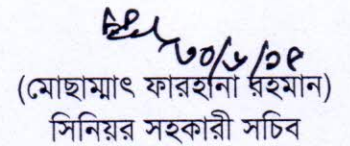 ৩০/৬/১৫
(মোছাম্মাৎ ফারহানা রহমান)
সিনিয়র সহকারী সচিব